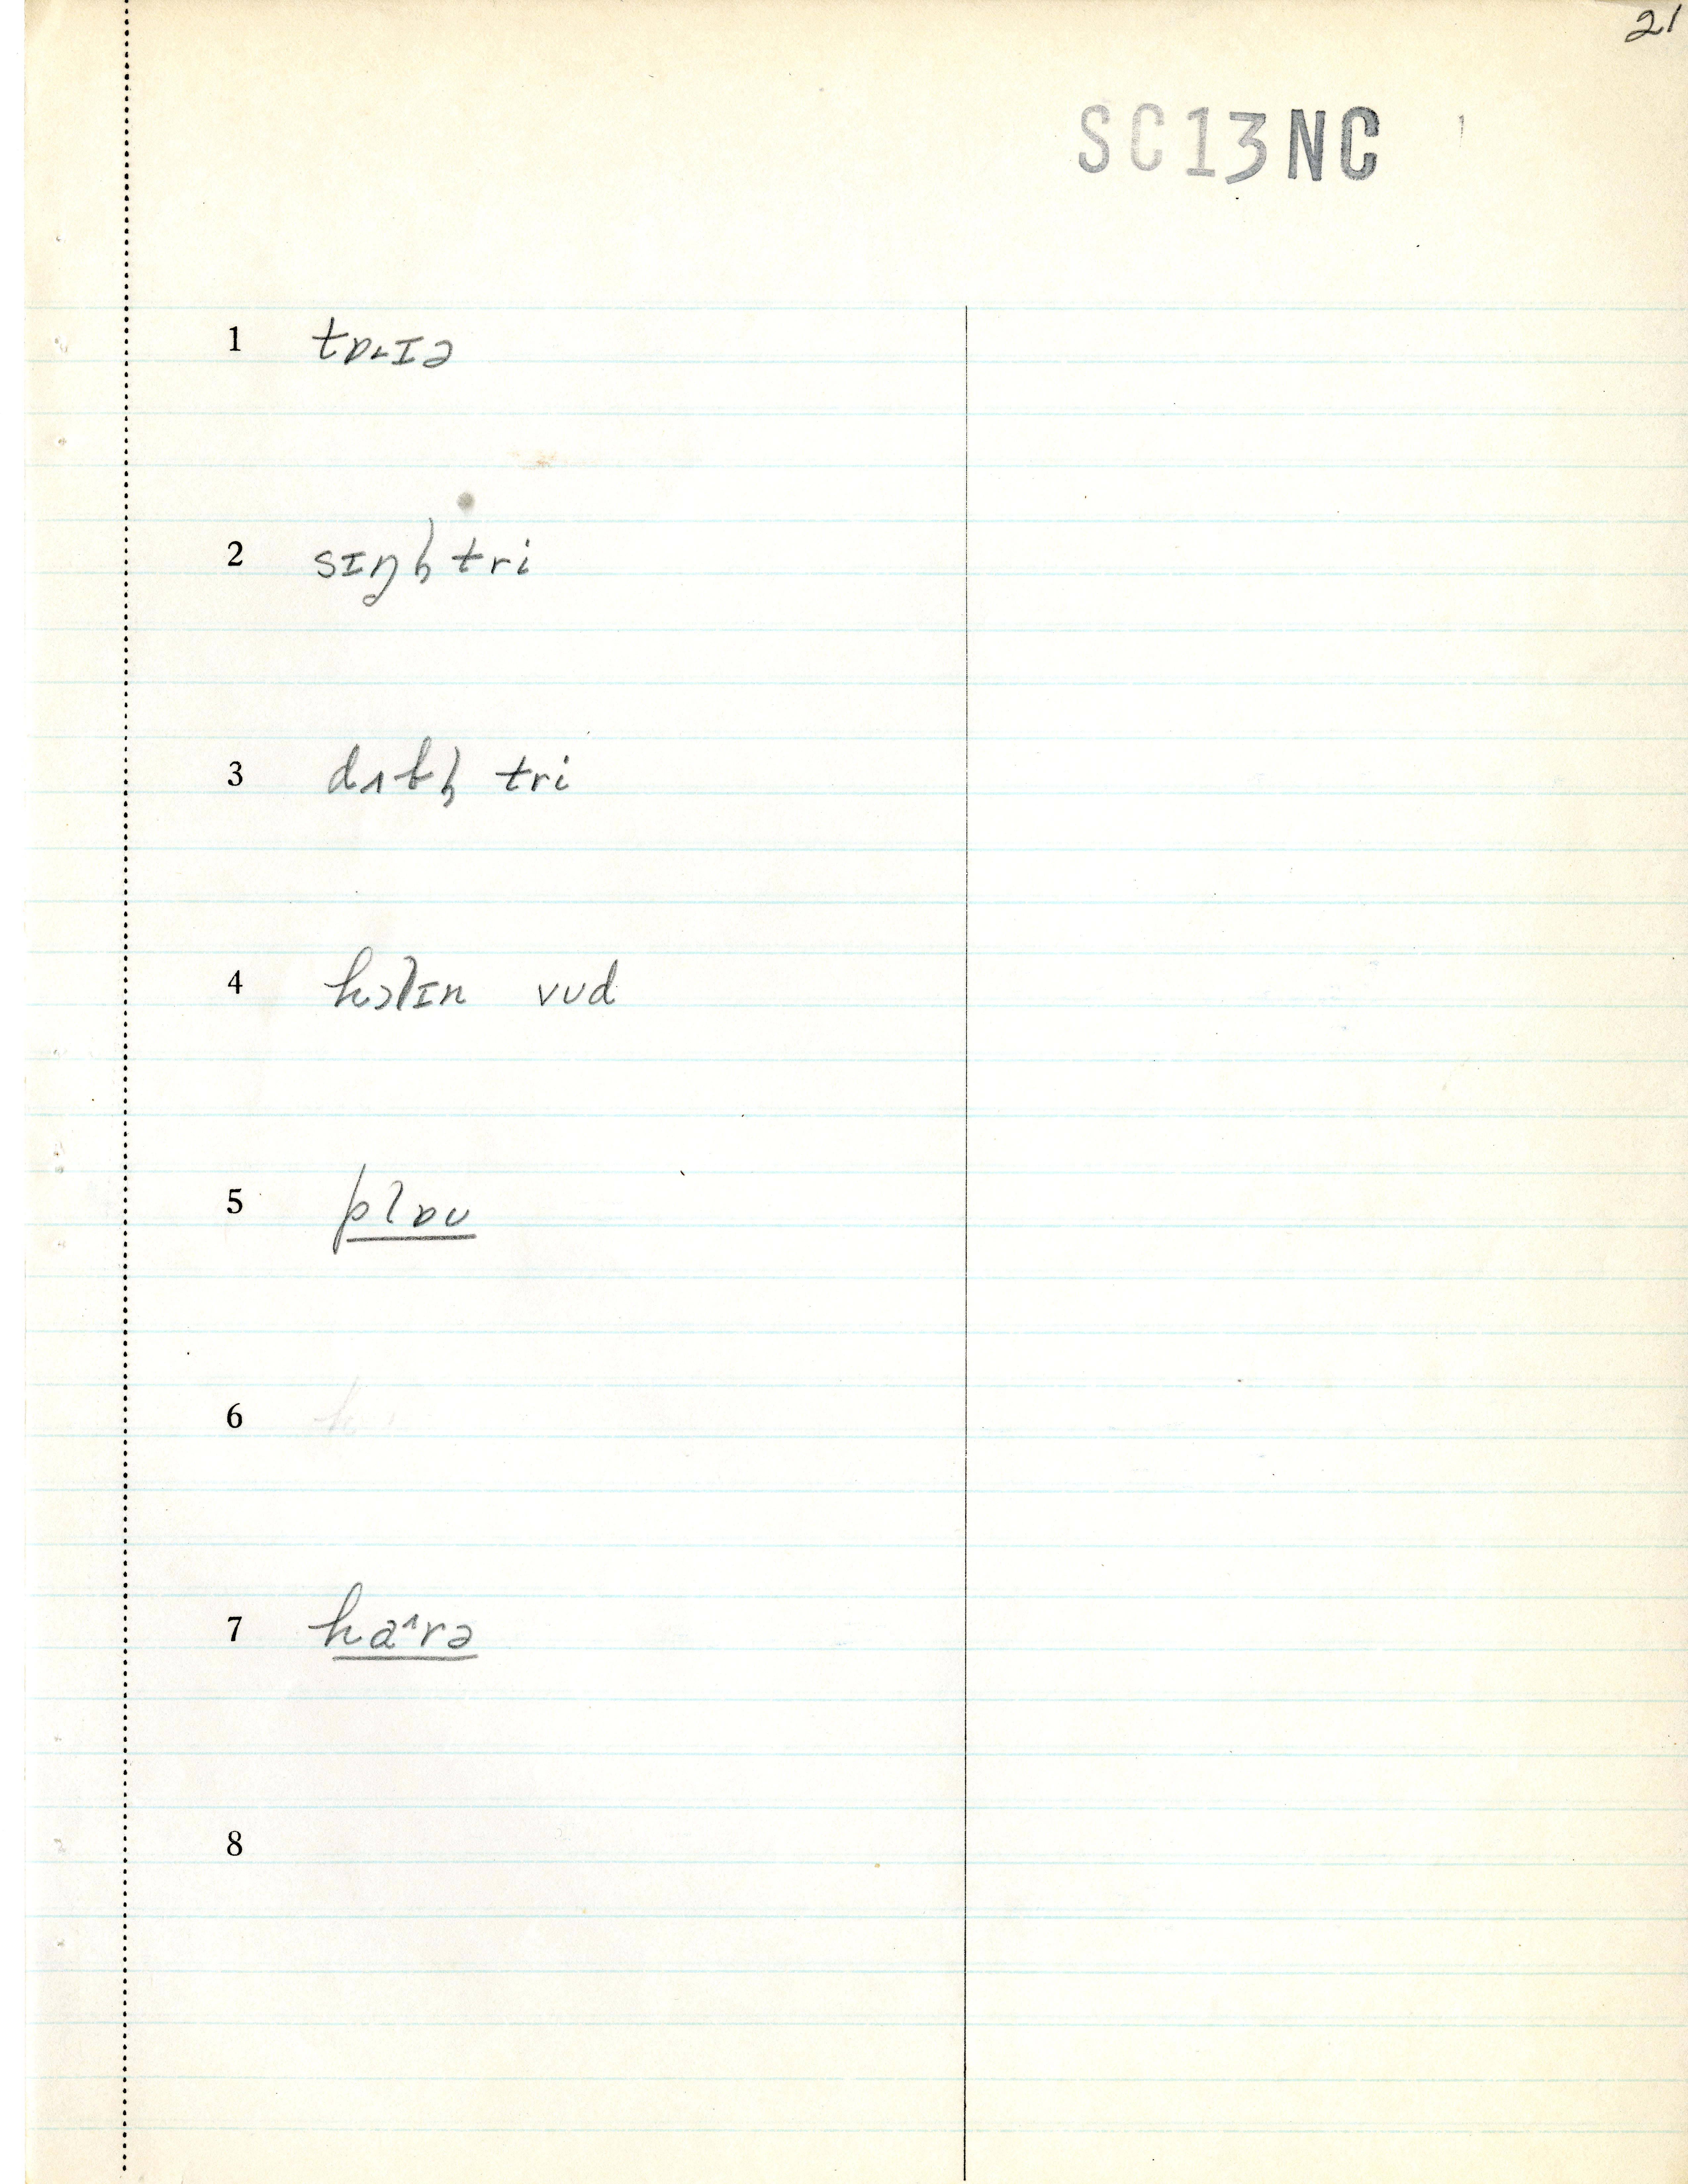 21
SC13NC
1 tɒ˔ɪə
2 sɪŋl̩ tri
3 dʌbl̩ tri
4 hɔlɪn vud
5 plɒu
6
7 ha˄rə
8